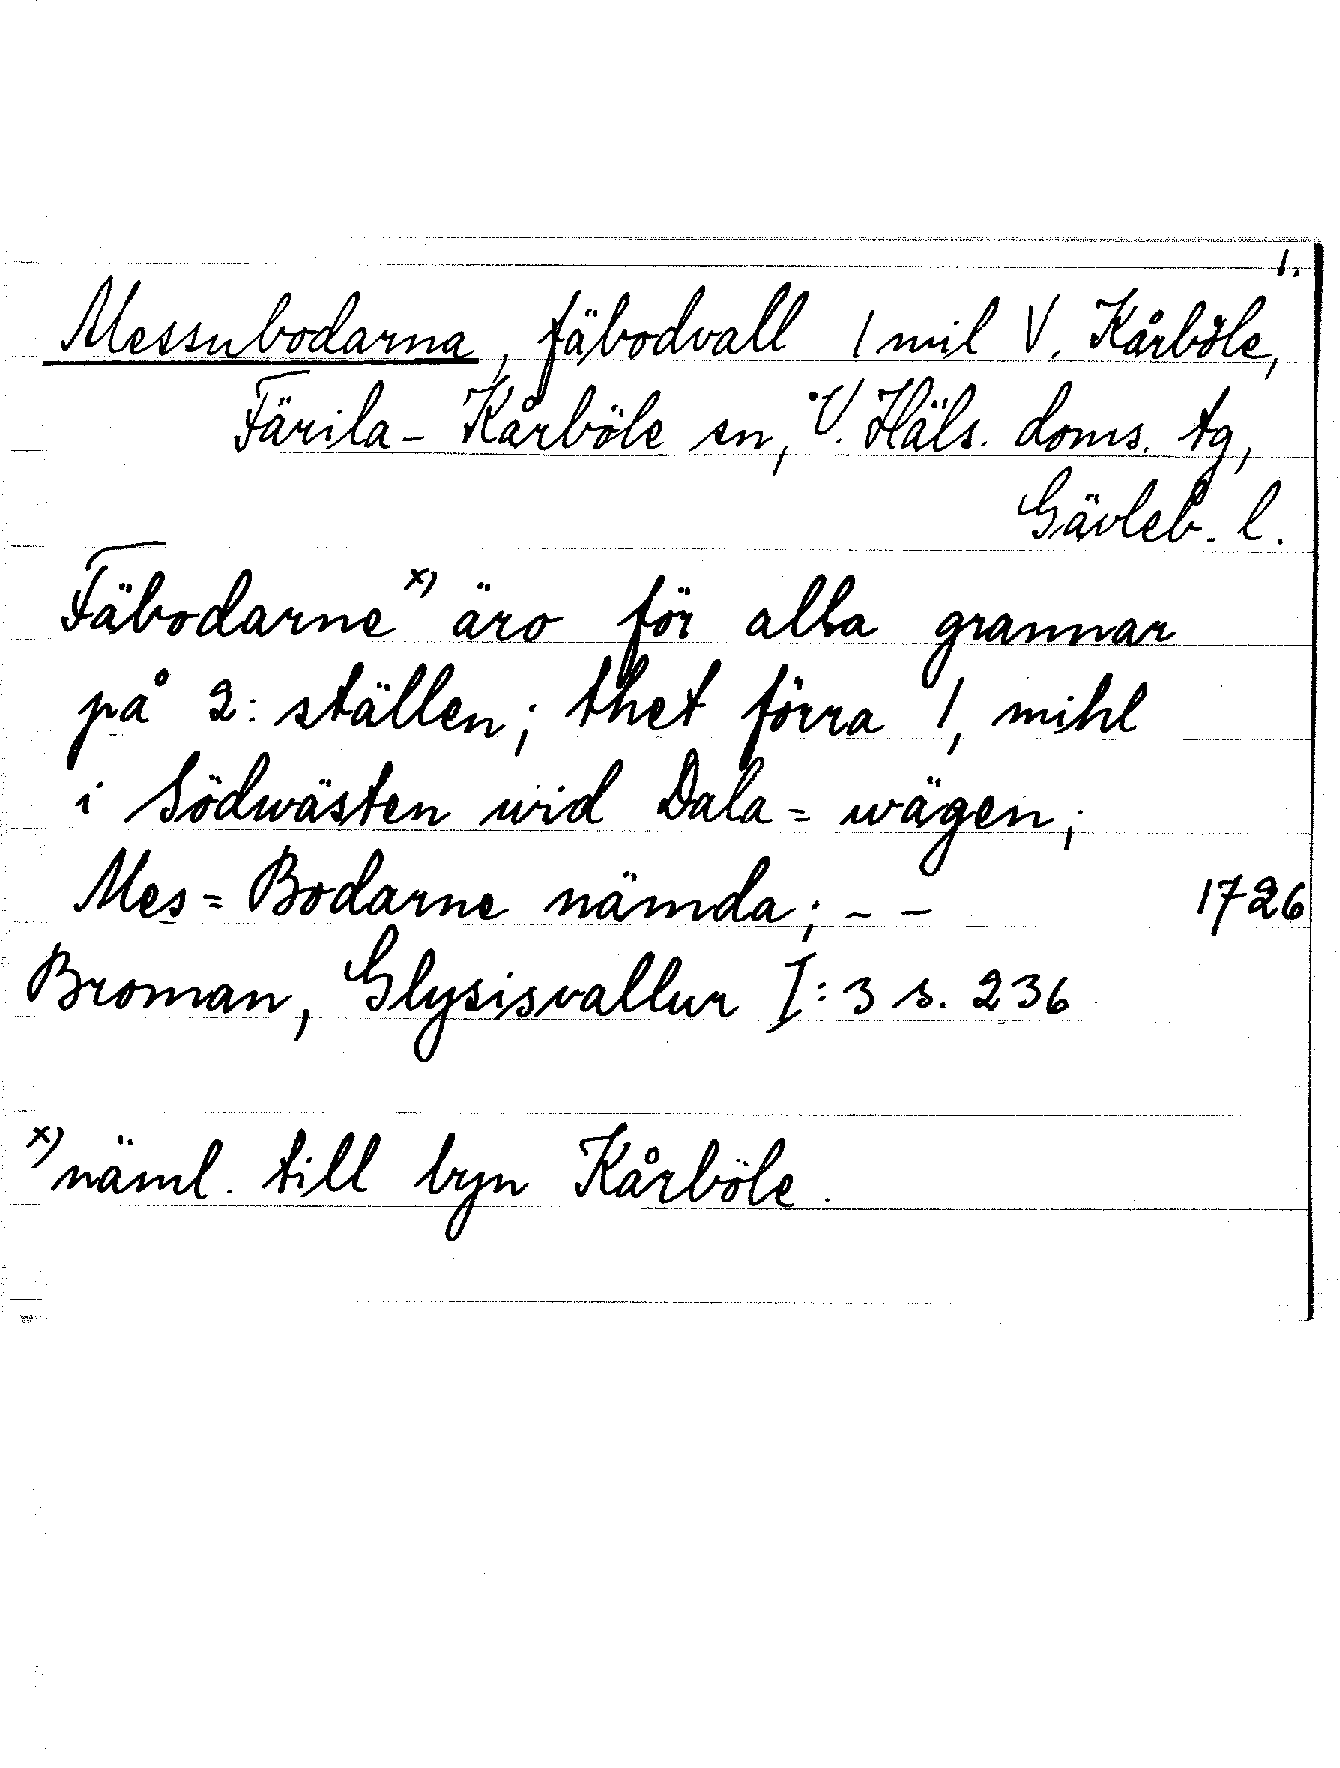 1.
Messubodarna, fäbodvall 1 mil V. Kårböle,
Färila-Kårböle sn, V. Häls. doms. tg,
Gävleb. l.
Fäbodarne x) äro för alla grannar
på 2: ställen; thet förra 1, mihl
i Södwästen wid Dala=wägen;
Mes=Bodarne nämda; - - 1726
Broman, Glysisvallur I:3 s. 236
x) näml. till byn Kårböle.